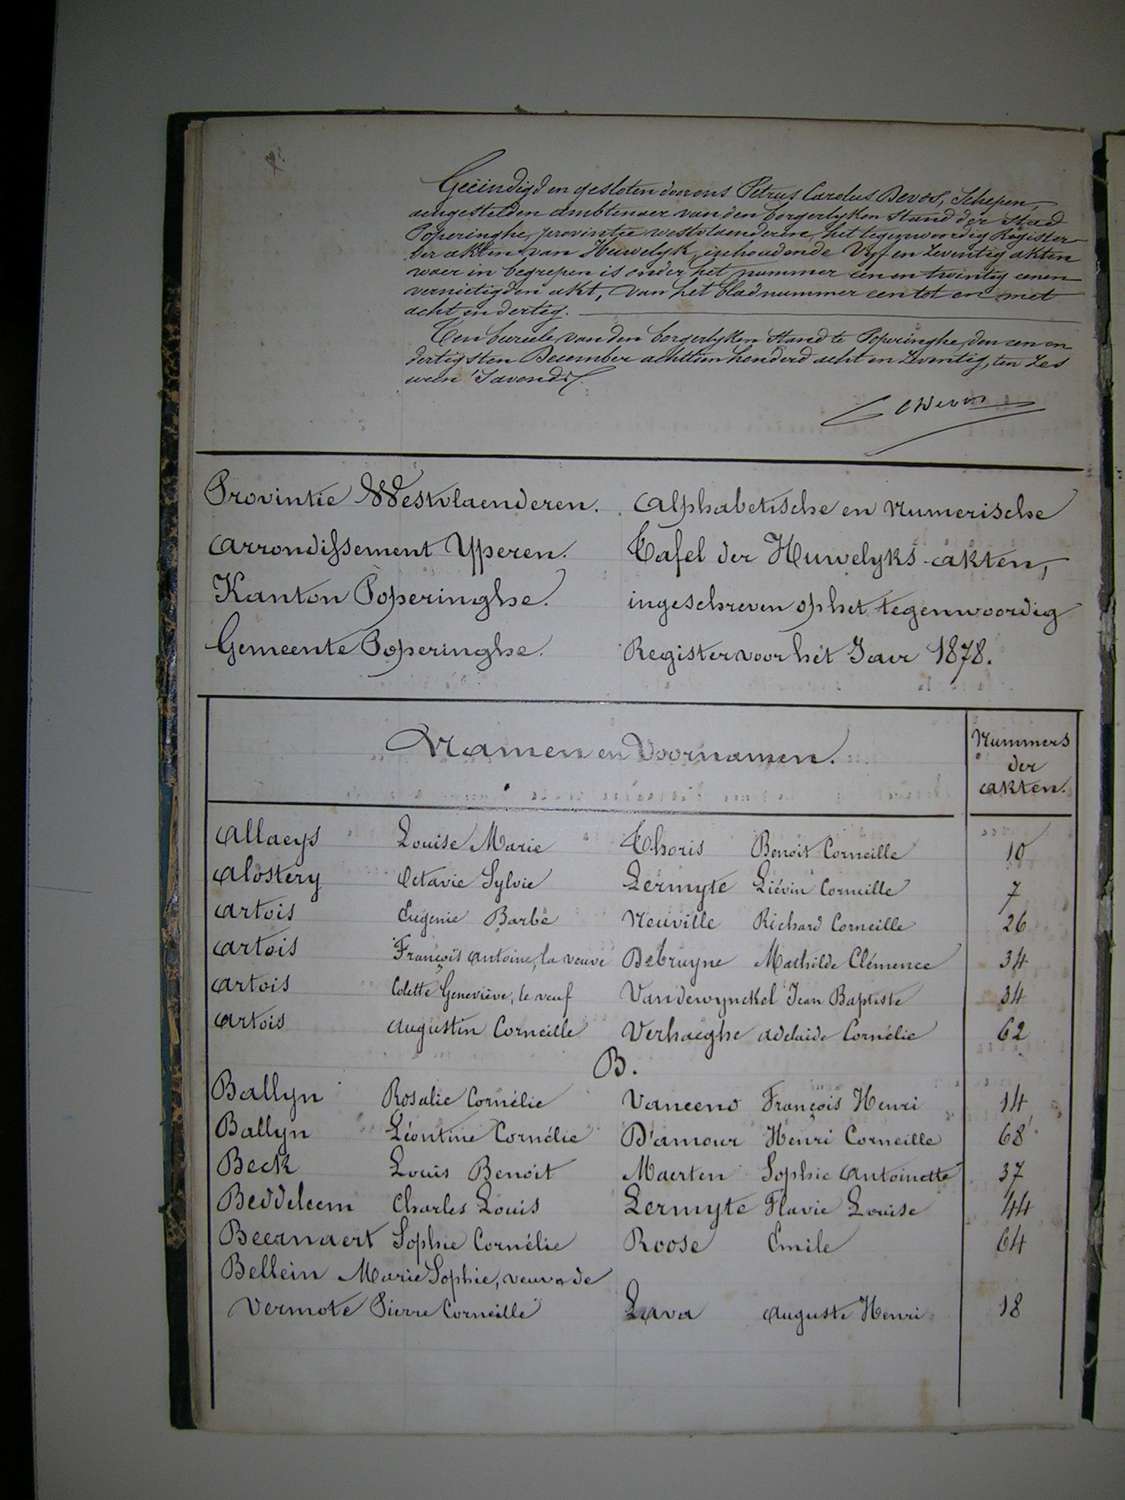 Geëindigd en gesloten door ons Petrus Carolus Devos, Schepen,
aengestelden ambtenaer van den borgerlyken Stand der Stad
Poperinghe, provintie westvlaenderen, het tegenwoordig Register
der akten van Huwelyk, inhoudende Vyf en Zeventig akten
waer in begrepen is onder het nummer een en twintig eenen
vernietigden akt, van het blad nummer een tot en met
acht en dertig.
Ten bureele van den borgerlyken Stand te Poperinghe, den een en
dertigsten December achttien honderd acht en Zeventig, ten Zes
uren 'Savonds.
CDevos
Provintie Westvlaenderen. Alphabetische en Numerische
Arrondissement Yperen. Tafel der Huwelyks-akten,
Kanton Poperinghe. ingeschreven op het tegenwoordig
Gemeente Poperinghe. Register voor het Jaar 1878.
Namen en Voornamen. Nummers
der
akten.
Allaeys Louise Marie Thoris Benoit Corneille 10
Alostery Octavie Sylvie Lermyte Liévin Corneille 7
Artois Eugenie Barbe Neuville Richard Corneille 26
Artois François Antoine, la veuve Debruyne Mathilde Clémence 34
Artois Colette Geneviève, le veuf Vandewynckel Jean Baptiste 34
Artois Augustin Corneille Verhaeghe Adelaide Cornélie 62
B.
Ballyn Rosalie Cornélie Vanceno François Henri 14
Ballyn Léontine Cornélie D'amour Henri Corneille 68
Beck Louis Benoit Maerten Sophie Antoinette 37
Beddeleem Charles Louis Lermyte Flavie Louise 44
Beernaert Sophie Cornélie Roose Emile 64
Bellein Marie Sophie, veuve de
Vermote Pierre Corneille Lava Auguste Henri 18